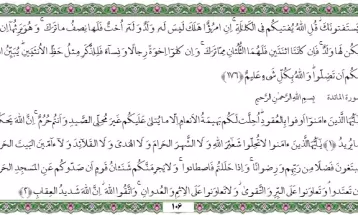 يَسْتَفْتُونَكَ قُلِ اللَّهُ يُفْتِيكُمْ فِي الْكَلَالَةِ إِنِ امْرُؤٌا هَلَكَ لَيْسَ لَهُ وَلَدٌ وَلَهُ أُخْتٌ فَلَهَا نِصْفُ مَا تَرَكَ وَهُوَ يَرِثُهَا إِن
يَكُن لَّهَا وَلَدٌ فَإِن كَانَتَا اثْنَتَيْنِ فَلَهُمَا الثُّلُثَانِ مِمَّا تَرَكَ وَإِن كَانُوا إِخْوَةً رِّجَالًا وَنِسَاءً فَلِلذَّكَرِ مِثْلُ حَظِّ الْأُنثَيَيْنِ يُبَيِّنُ
لَكُمْ أَن تَضِلُّوا وَاللَّهُ بِكُلِّ شَيْءٍ عَلِيمٌ ﴿١٧٦﴾
سورة المائدة بِسْمِ اللَّهِ الرَّحْمَٰنِ الرَّحِيمِ
يَا أَيُّهَا الَّذِينَ آمَنُوا أَوْفُوا بِالْعُقُودِ أُحِلَّتْ لَكُم بَهِيمَةُ الْأَنْعَامِ إِلَّا مَا يُتْلَىٰ عَلَيْكُمْ غَيْرَ مُحِلِّي الصَّيْدِ وَأَنتُمْ حُرُمٌ إِنَّ اللَّهَ يَحْكُمُ
مَا يُرِيدُ ﴿١﴾ يَا أَيُّهَا الَّذِينَ آمَنُوا لَا تُحِلُّوا شَعَائِرَ اللَّهِ وَلَا الشَّهْرَ الْحَرَامَ وَلَا الْهَدْيَ وَلَا الْقَلَائِدَ وَلَا آمِّينَ الْبَيْتَ الْحَرَامَ
يَبْتَغُونَ فَضْلًا مِّن رَّبِّهِمْ وَرِضْوَانًا وَإِذَا حَلَلْتُمْ فَاصْطَادُوا وَلَا يَجْرِمَنَّكُمْ شَنَآنُ قَوْمٍ أَن صَدُّوكُمْ عَنِ الْمَسْجِدِ الْحَرَامِ
أَن تَعْتَدُوا وَتَعَاوَنُوا عَلَى الْبِرِّ وَالتَّقْوَىٰ وَلَا تَعَاوَنُوا عَلَى الْإِثْمِ وَالْعُدْوَانِ وَاتَّقُوا اللَّهَ إِنَّ اللَّهَ شَدِيدُ الْعِقَابِ ﴿٢﴾
١٠٦